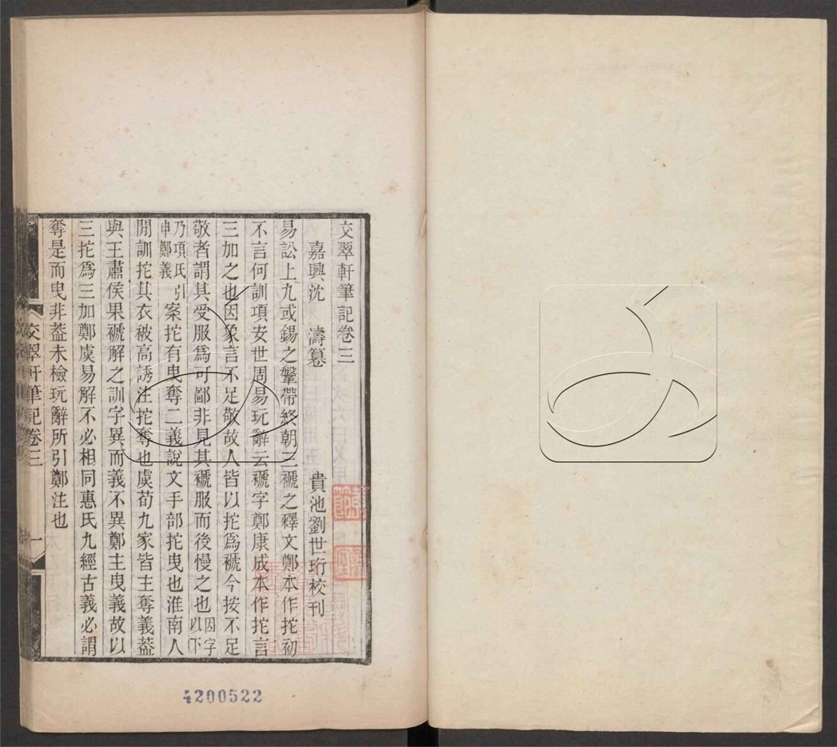 交翠軒筆記卷三
嘉興沈　濤纂　貴池劉世珩校刊
易訟上九或錫之鞶帶終朝三褫之釋文鄭本作拕初
不言何訓項安世周易玩辭云褫字鄭康成本作拕言
三加之也因象言不足敬故人皆以拕爲褫今按不足
敬者謂其受服爲可鄙非見其褫服而後慢之也因字以下
乃項氏引申鄭義　案拕有曳奪二義說文手部拕曳也淮南人
閒訓拕其衣被高誘注拕奪也虞荀九家皆主奪義葢
與王肅侯果褫解之訓字異而義不異鄭主曳義故以
三拕爲三加鄭虞易解不必相同惠氏九經古義必謂
奪是而曳非葢未檢玩辭所引鄭注也
交翠軒筆記卷三
一
4200522